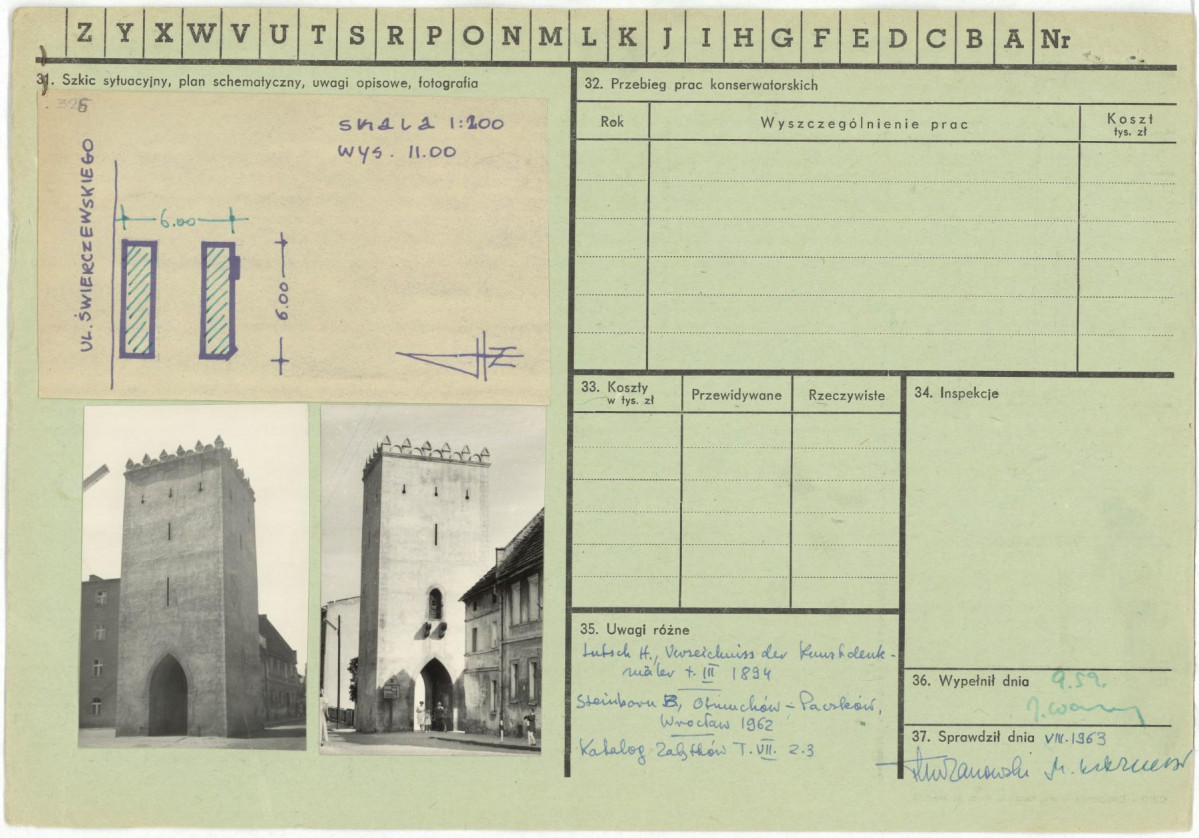 Z Y X W V U T S R P O N M L K J I H G F E D C B A Nr
31. Szkic sytuacyjny, plan schematyczny, uwagi opisowe, fotografia
326
SKALA 1:200
WYS. 11.00
UL. ŚWIERCZEWSKIEGO
6.00
6.00
N
32. Przebieg prac konserwatorskich
Rok
Wyszczególnienie prac
Koszt
tys. zł
33. Koszty
w tys. zł
Przewidywane
Rzeczywiste
34. Inspekcje
35. Uwagi różne
Lutsch H., Verzeichniss der Kunstdenk-
mäler t. III 1894
Steinborn B, Otmuchów - Paczków,
Wrocław 1962
Katalog Zabytków T. VII. z. 3
36. Wypełnił dnia 9.59.
37. Sprawdził dnia VIII.1963